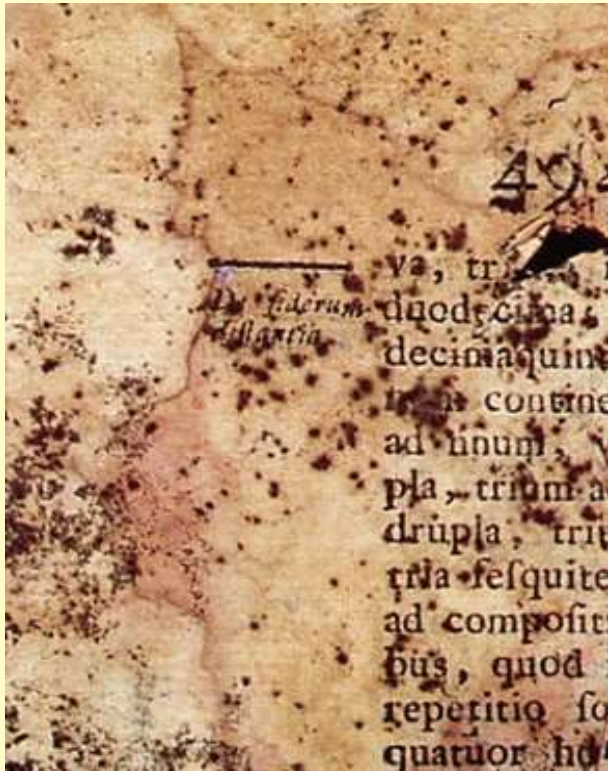 494
va, tr
De siderum
distantia
duodecima
decimaquin
contine
ad unum, v
pla, trium a
drupla, triu
tria sesquite
ad compositi
bus, quod
repetitio so
quatuor ho